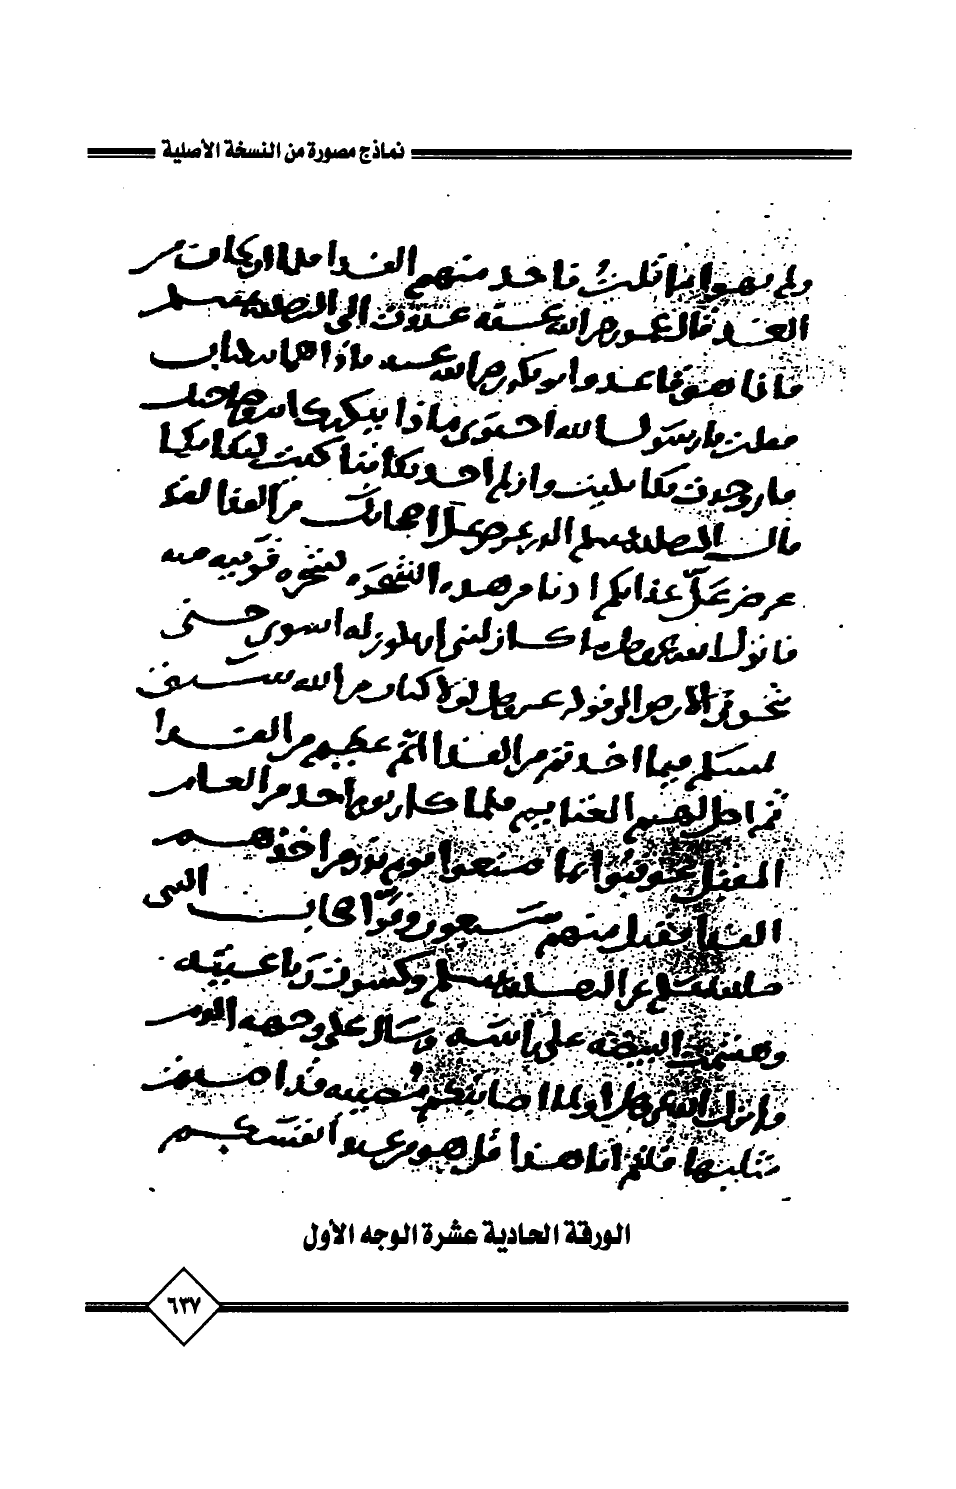 نماذج مصورة من النسخة الأصلية
ولم يهو ما قلت فاخذ منهم الفدا فلما ان كان من
الغد قال عمر رضي الله عنه غدوت الى النبي صلى الله عليه وسلم
فاذا هو قاعد وابو بكر رضي الله عنه واذا هما يبكيان
فقلت يا رسول الله اخبرني ماذا يبكيك انت وصاحبك
فان وجدت بكا بكيت وان لم اجد بكا تباكيت لبكائكما
قال النبي صلى الله عليه وسلم الذي عرض علي اصحابك من الفدا لقد
عرض علي عذابكم ادنا من هذه الشجرة لشجرة قريبه منه
فانزل الله عز وجل ما كان لنبي ان يكون له اسرى حتى
يثخن في الارض الى قوله عز وجل لولا كتاب من الله سبق
لمسكم فيما اخذتم من الفدا ثم عظيم من الفدا
ثم احل لهم الغنايم فلما كان يوم احد من العام
المقبل عوقبوا بما صنعوا يوم بدر من اخذهم
الفدا فقتل منهم سبعون وفر اصحاب النبي
صلى الله عليه وسلم عن النبي صلى الله عليه وسلم وكسرت رباعيته
وهشمت البيضة على راسه وسال على وجهه الدم
وانزل الله عز وجل اولما اصابتكم مصيبه قد اصبتم
مثليها قلتم انا هذا قل هو من عند انفسكم
الورقة الحادية عشرة الوجه الأول
٦٣٧